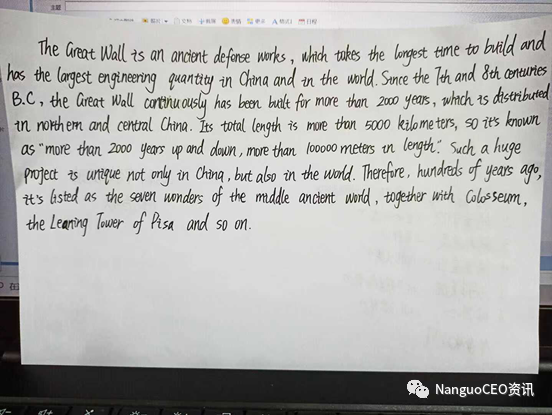 The Great Wall is an ancient defense works, which takes the longest time to build and
has the largest engineering quantity in China and in the world. Since the 7th and 8th centuries
B.C, the Great Wall continuously has been built for more than 2000 years, which is distributed
in northern and central China. Its total length is more than 5000 kilometers, so it's known
as "more than 2000 years up and down, more than 100000 meters in length." Such a huge
project is unique not only in China, but also in the world. Therefore, hundreds of years ago,
it's listed as the seven wonders of the middle ancient world, together with Colosseum,
the Leaning Tower of Pisa and so on.
NanguoCEO资讯